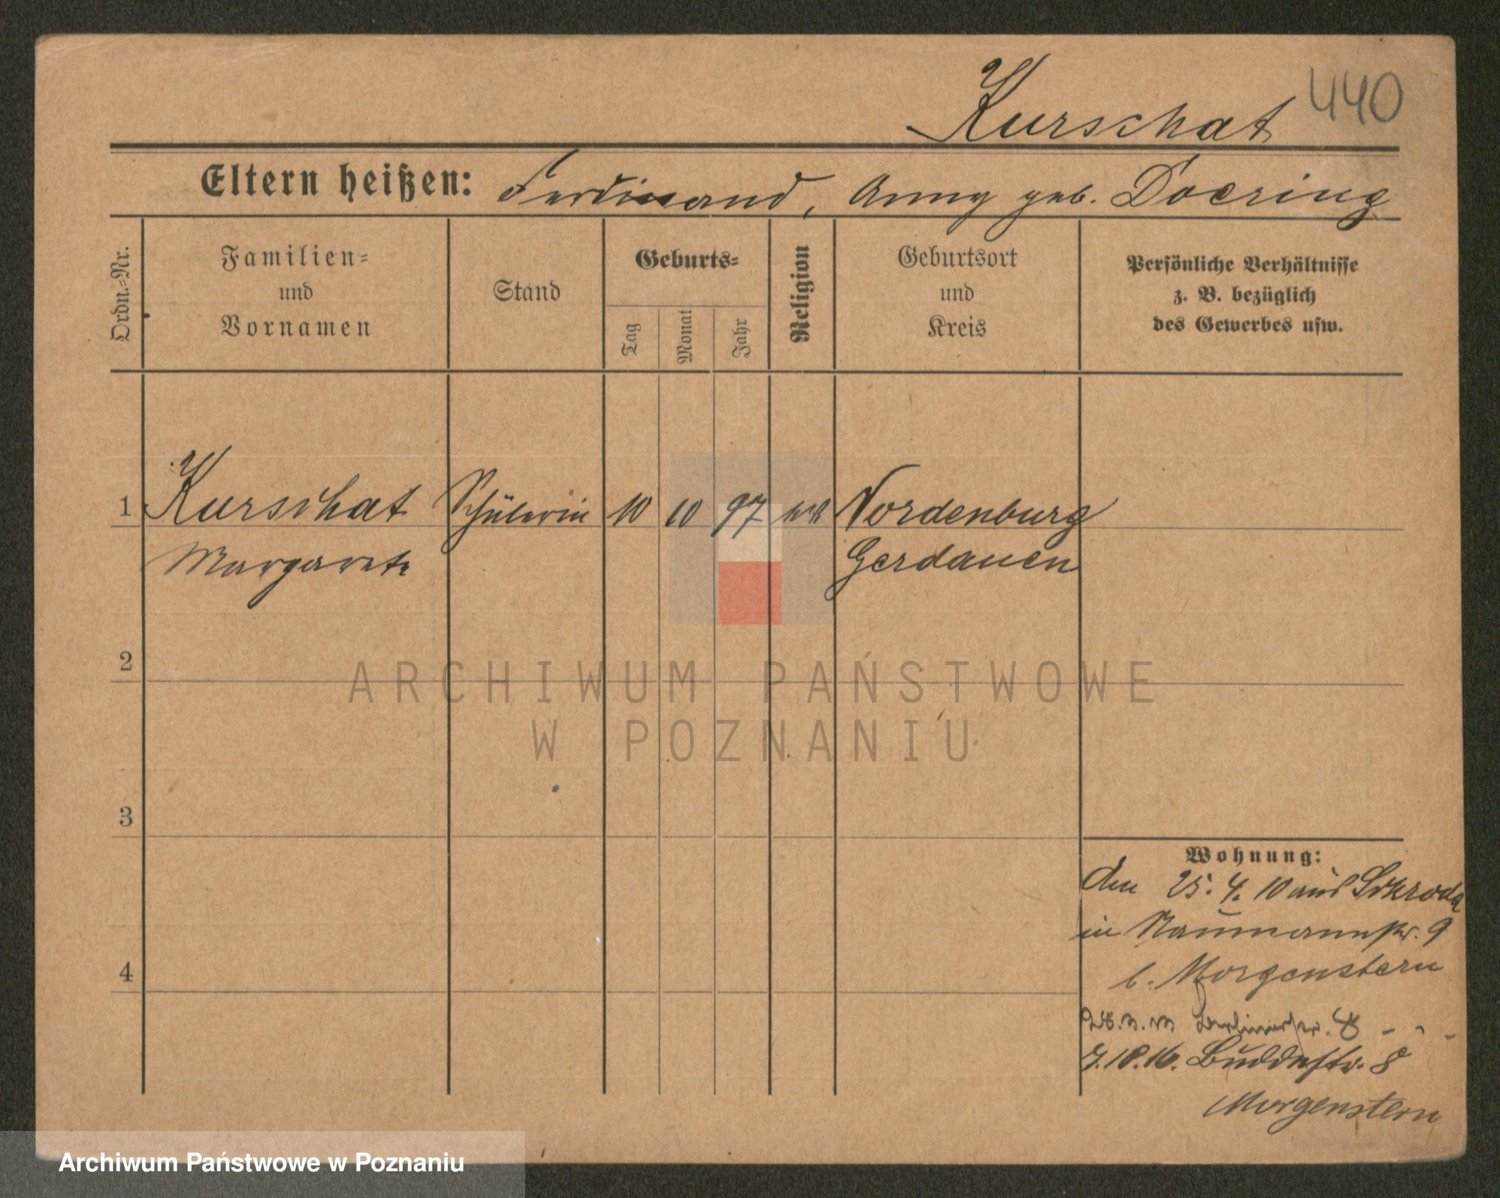 Kurschat 440
Eltern heißen: Ferdinand, Anny geb. Doering
Ordn.-Nr.
Familien-
und
Vornamen
Stand
Geburts-
Tag
Monat
Jahr
Religion
Geburtsort
und
Kreis
Persönliche Verhältnisse
z. B. bezüglich
des Gewerbes usw.
1 Kurschat Schülerin 10 10 97 Nordenburg
Margarete Gerdauen
2
ARCHIWUM PAŃSTWOWE
W POZNANIU
3
Wohnung:
den 25. 4. 10 aus Schroda
in Naumannstr. 9
b. Morgenstern
4
Berlinerstr. 8 - " -
7.10.16. Buddestr. 8
Morgenstern
Archiwum Państwowe w Poznaniu